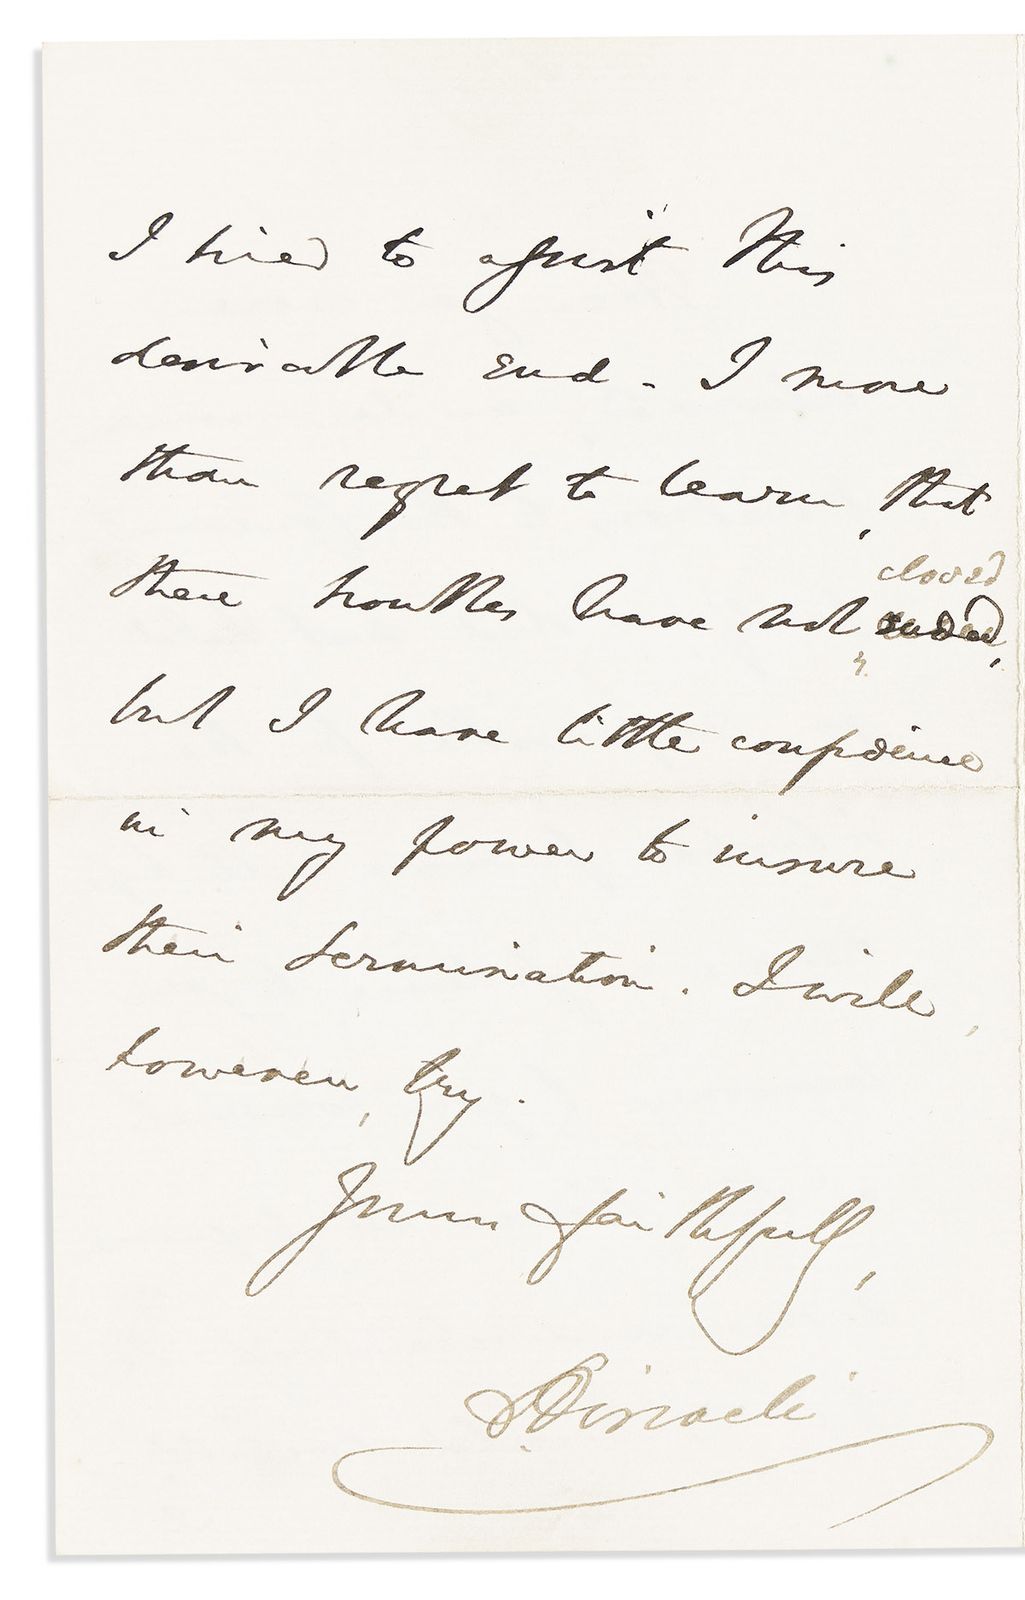 I tried to adjust this
desirable end. I more
than regret to learn, that
closed
these troubles have not ended,
but I have little confidence
in my power to insure
their termination. I will,
however, try.
Yours faithfully,
D.